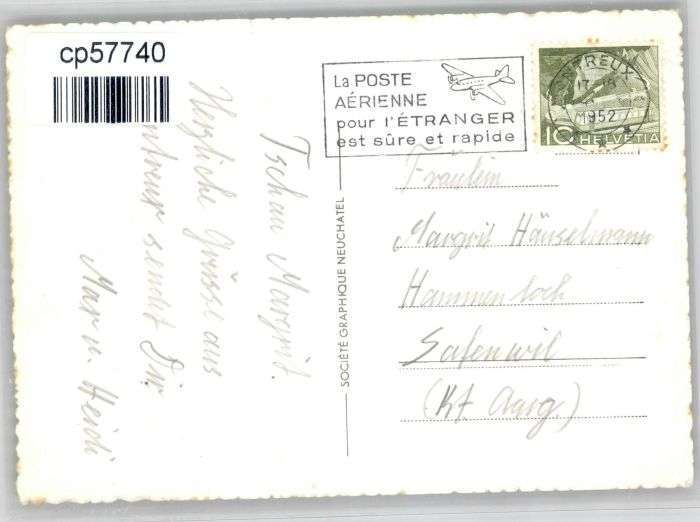 cp57740
La POSTE
AÉRIENNE
pour l'ÉTRANGER
est sûre et rapide
MONTREUX
1952
10 HELVETIA
Tschau Margrit.
Herzliche Grüsse aus
Montreux sendet Dir
Max u. Heidi
SOCIÉTÉ GRAPHIQUE NEUCHATEL
Fräulein
Margrit Häuselmann
Hammerloch
Safenwil
(Kt. Aarg.)